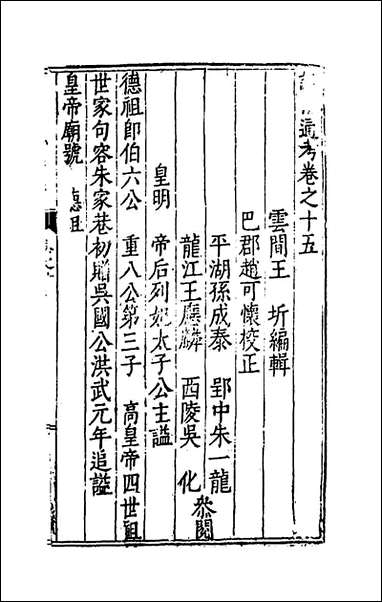 謚法通考卷之十五
雲間王　圻編輯
巴郡趙可懷校正
平湖孫成泰　郢中朱一龍
龍江王應麟　西陵吳　化　叅閱
皇明　帝后列妃太子公主謚
德祖卽伯六公　重八公第三子　高皇帝四世祖
世家句容朱家巷初贈吳國公洪武元年追謚
皇帝廟號